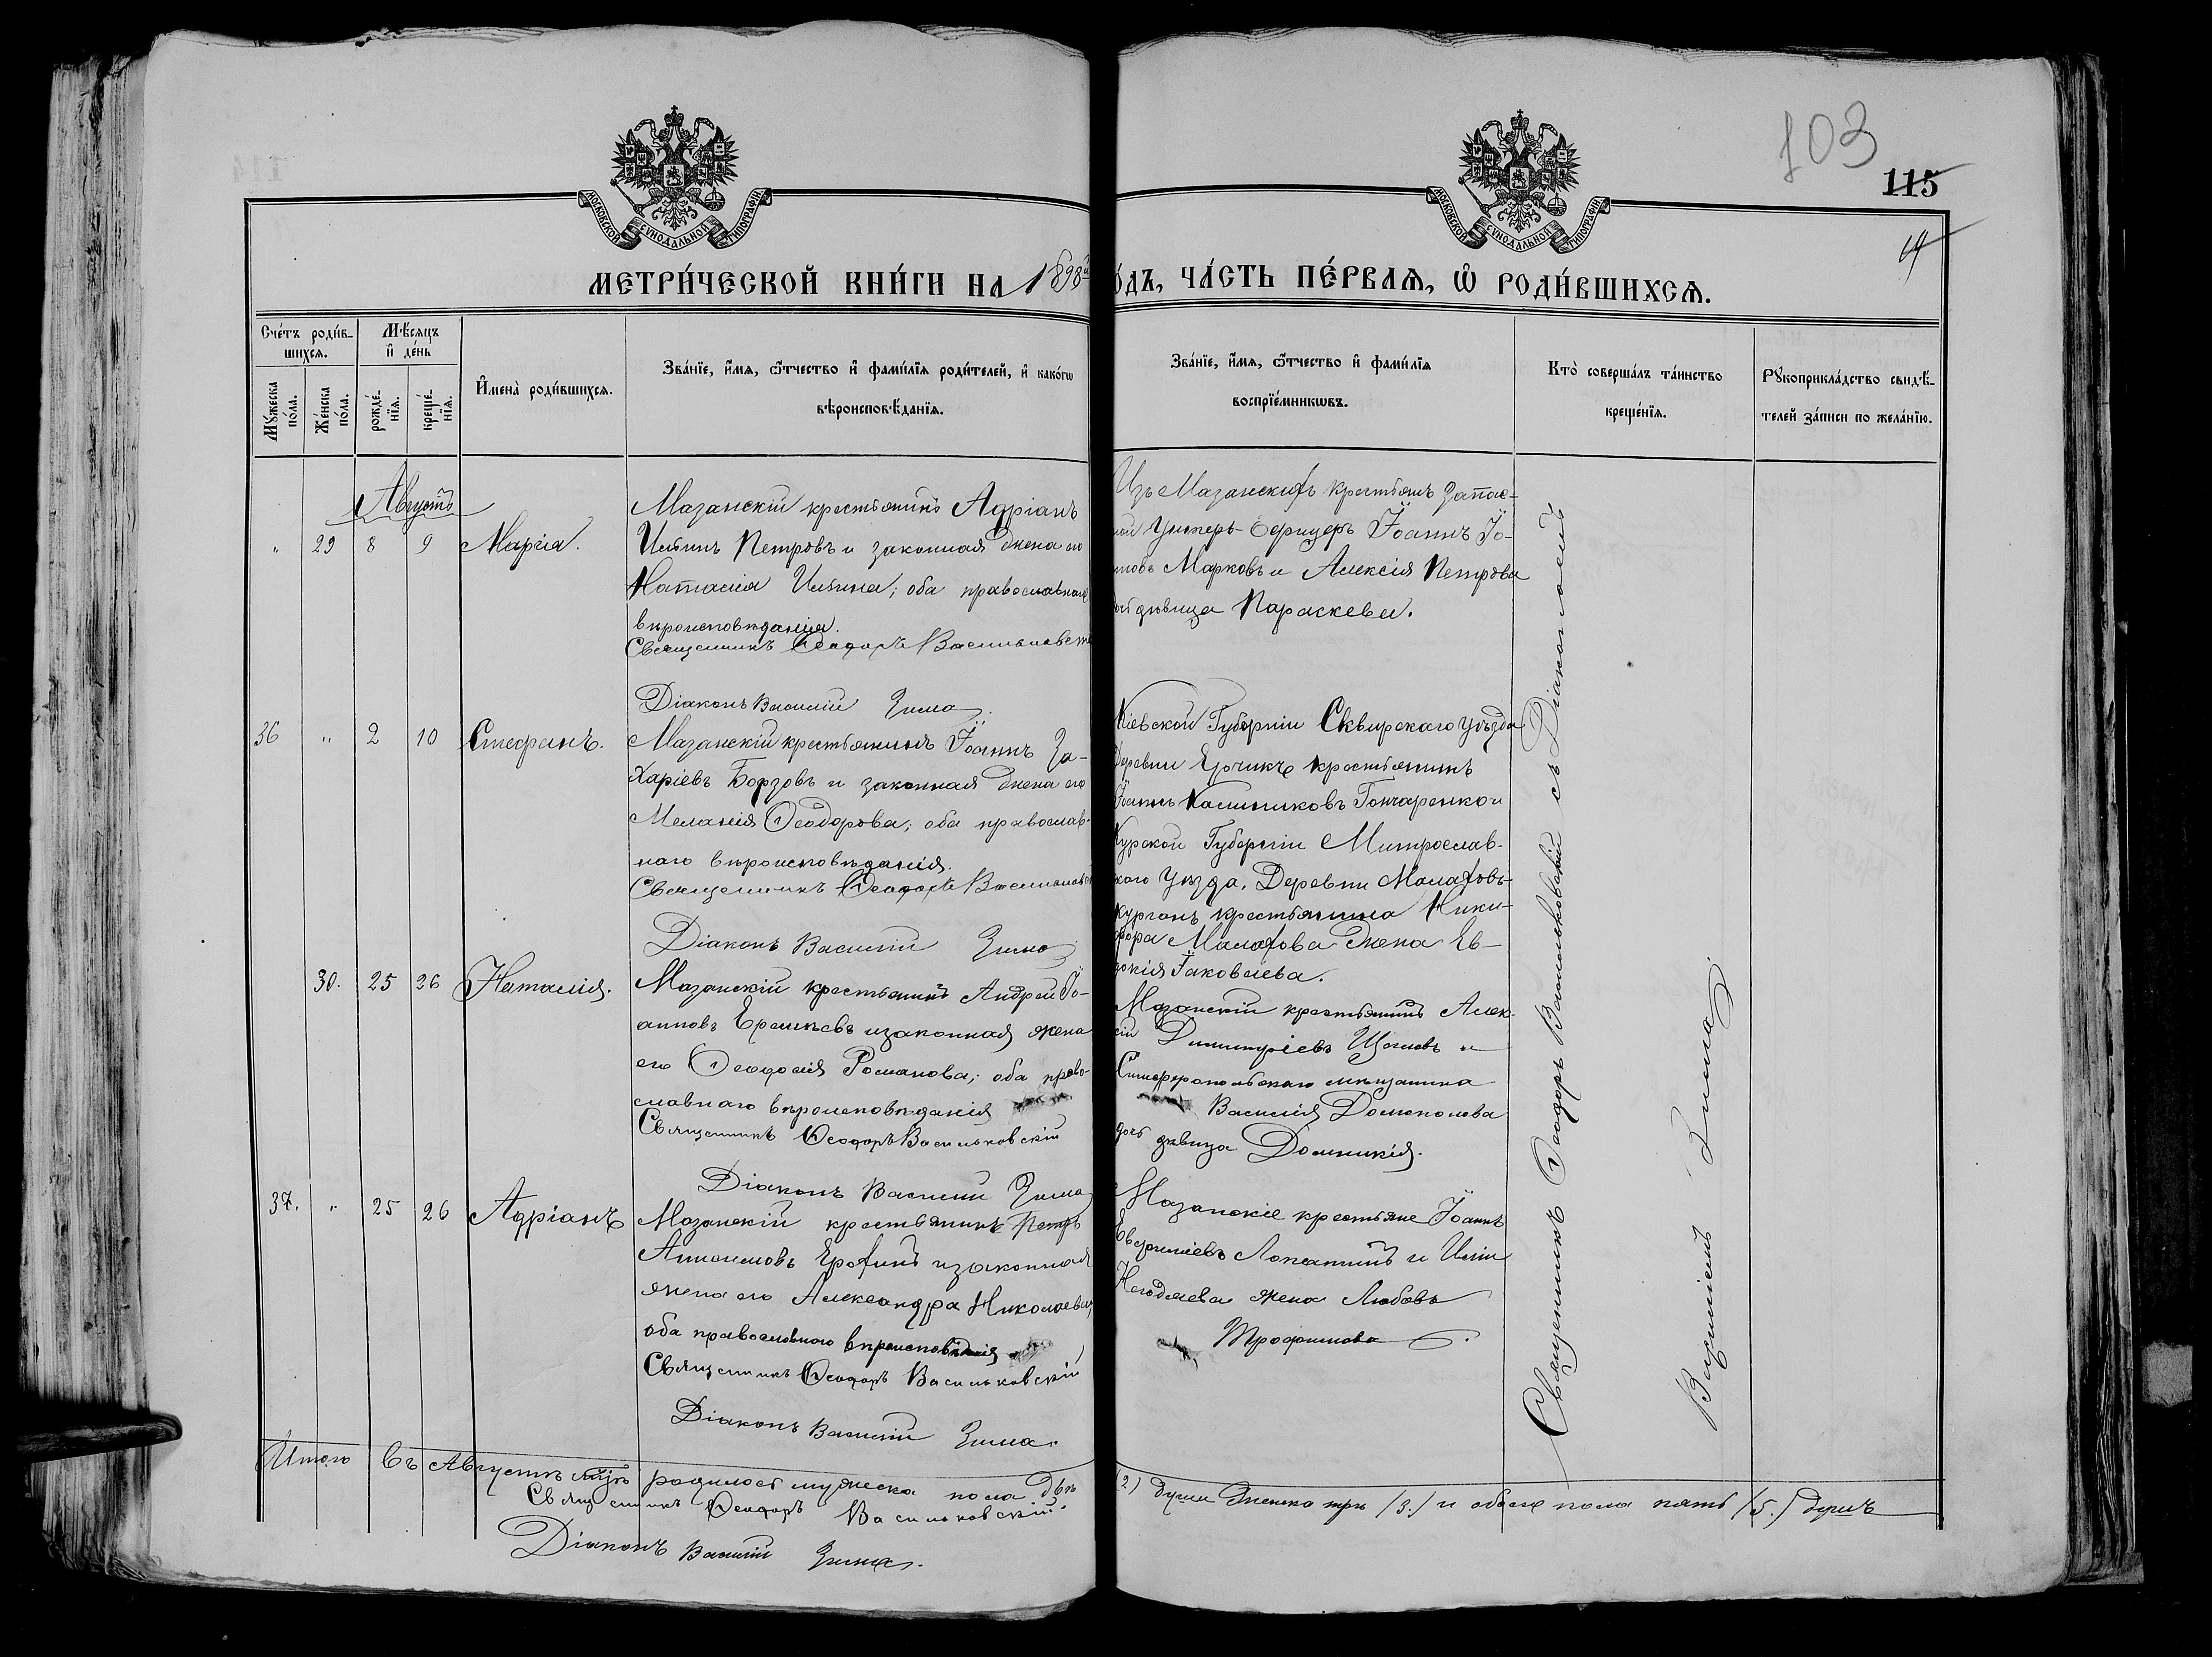 103
115
МОСКОВСКОЙ СѴНОДАЛЬНОЙ ТИПОГРАФІИ
МОСКОВСКОЙ СѴНОДАЛЬНОЙ ТИПОГРАФІИ
МЕТРИ́ЧЕСКОЙ КНИ́ГИ НА 1898й
О́ДЪ, ЧА́СТЬ ПЕ́РВАѦ, Ѽ РОДИ́ВШИХСѦ.
Сче́тъ роди́в-
шихсѧ.
Мѣ́сѧцъ
и҆ де́нь
Мꙋ́жеска
по́ла.
Же́нска
по́ла.
рожде́-
нїѧ.
креще́-
нїѧ.
И҆мена̀ роди́вшихсѧ.
Зва́нїе, и҆́мѧ, ѻ҆́тчество и҆ фами́лїѧ роди́телей, и҆ како́гѡ
вѣроисповѣ́данїѧ.
Зва́нїе, и҆́мѧ, ѻ҆́тчество и҆ фами́лїѧ
воспрїе́мникѡвъ.
Кто̀ соверша́лъ та́инство
креще́нїѧ.
Рꙋкоприкла́дство свидѣ́-
телей за́писи по жела́нїю.
Августъ
" 29 8 9 Марѳiа.
Мазанскій крестьянинъ Адріанъ
Ильинъ Петровъ и законная жена его
Наталія Ильина; оба православнаго
вѣроисповѣданія.
Священникъ Ѳеодоръ Васильковскі
Діаконъ Василій Зима.
Изъ Мазанскихъ крестьянъ Запас-
ной Унтеръ-Офицеръ Іоаннъ Іо-
нновъ Марковъ и Алексія Петрова
дѣвица Параскева.
36 " 2 10 Стефанъ.
Мазанскій крестьянинъ Іоаннъ За-
харіевъ Борзовъ и законная жена его
Меланія Ѳеодорова; оба православ-
наго вѣроисповѣданія.
Священникъ Ѳеодоръ Васильковск
Діаконъ Василій Зима
Кіевской Губерніи Сквирскаго Уѣзда
Деревни Ерчикъ крестьянинъ
Гончаренко и
Курской Губерніи
каго Уѣзда, Деревни
Курганъ крестьянина Ники-
фора Малахова жена Ев-
докія Іаковлева.
30. 25 26 Наталія.
Мазанскій крестьянинъ Андрей Іо-
анновъ и законная жена
его Ѳеодосія Романова; оба право-
славнаго вѣроисповѣданія
Священникъ Ѳеодоръ Васильковскій
Діаконъ Василій Зима
Мазанскій крестьянинъ Алек-
сій Димитріевъ и
Симферопольскаго мѣщанина
Василія
дочь дѣвица Домникія.
37. " 25 26 Адріанъ
Мазанскій крестьянинъ Петръ
Ерохинъ и законная
жена его Александра Николаева,
оба православнаго вѣроисповѣданія
Священникъ Ѳеодоръ Васильковскій
Діаконъ Василій Зима.
Мазанскіе крестьяне Іоаннъ
Лопатинъ и Иліи
Негодяева жена Любовь
Трофимова.
Священникъ Ѳеодоръ Васильковскій съ Діакономъ
Василіемъ Зима.
Итого въ Августѣ м-цѣ родилось мужеска пола двѣ
(2) души женска три /3./ и обоего пола пять /5./ душъ
Священникъ Ѳеодоръ Васильковскій.
Діаконъ Василій Зима.